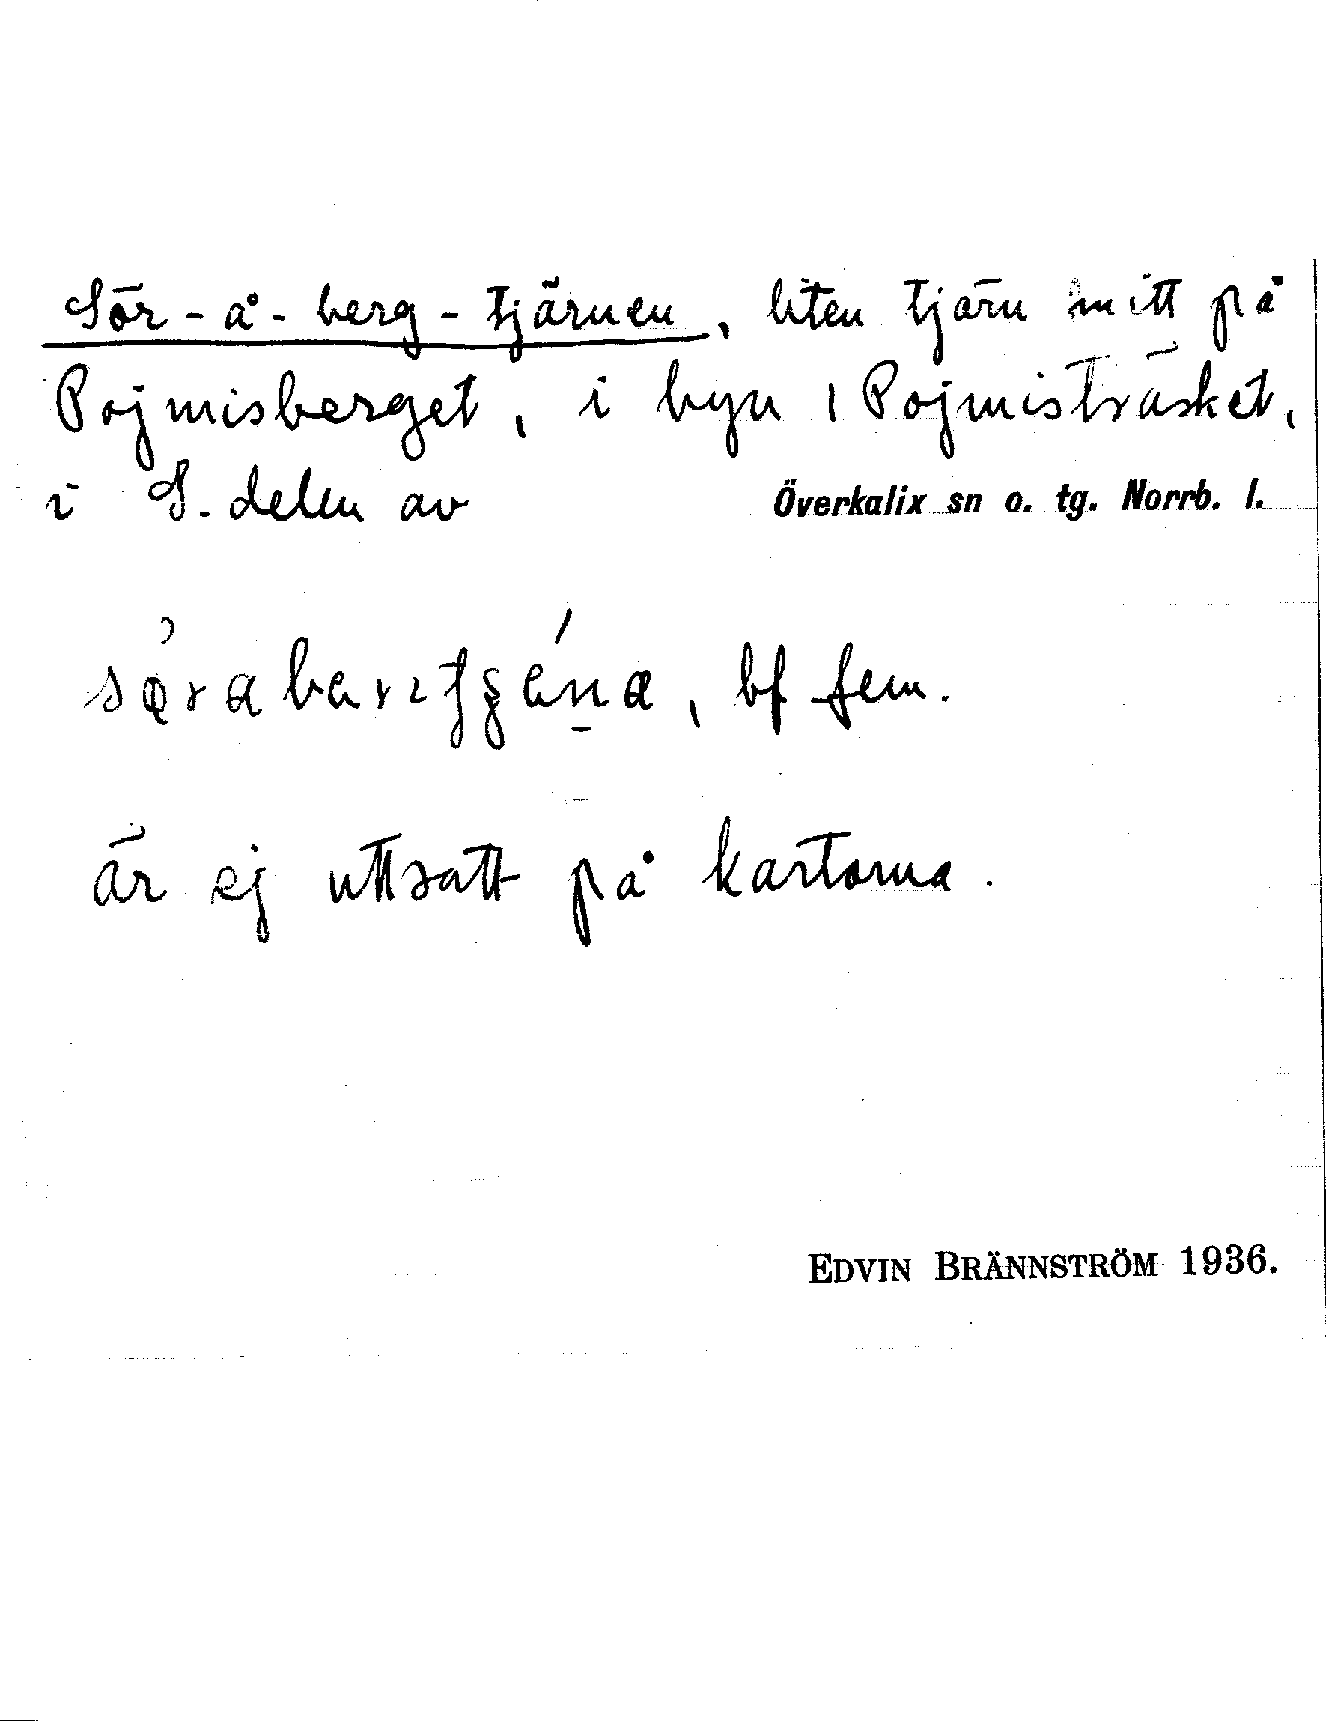 Sör-å-berg-tjärnen, liten tjärn mitt på
Pojmisberget, i byn Pojmisträsket,
i S. delen av Överkalix sn o. tg. Norrb. l.
bf fem.
är ej uttsatt på kartorna.
EDVIN BRÄNNSTRÖM 1936.